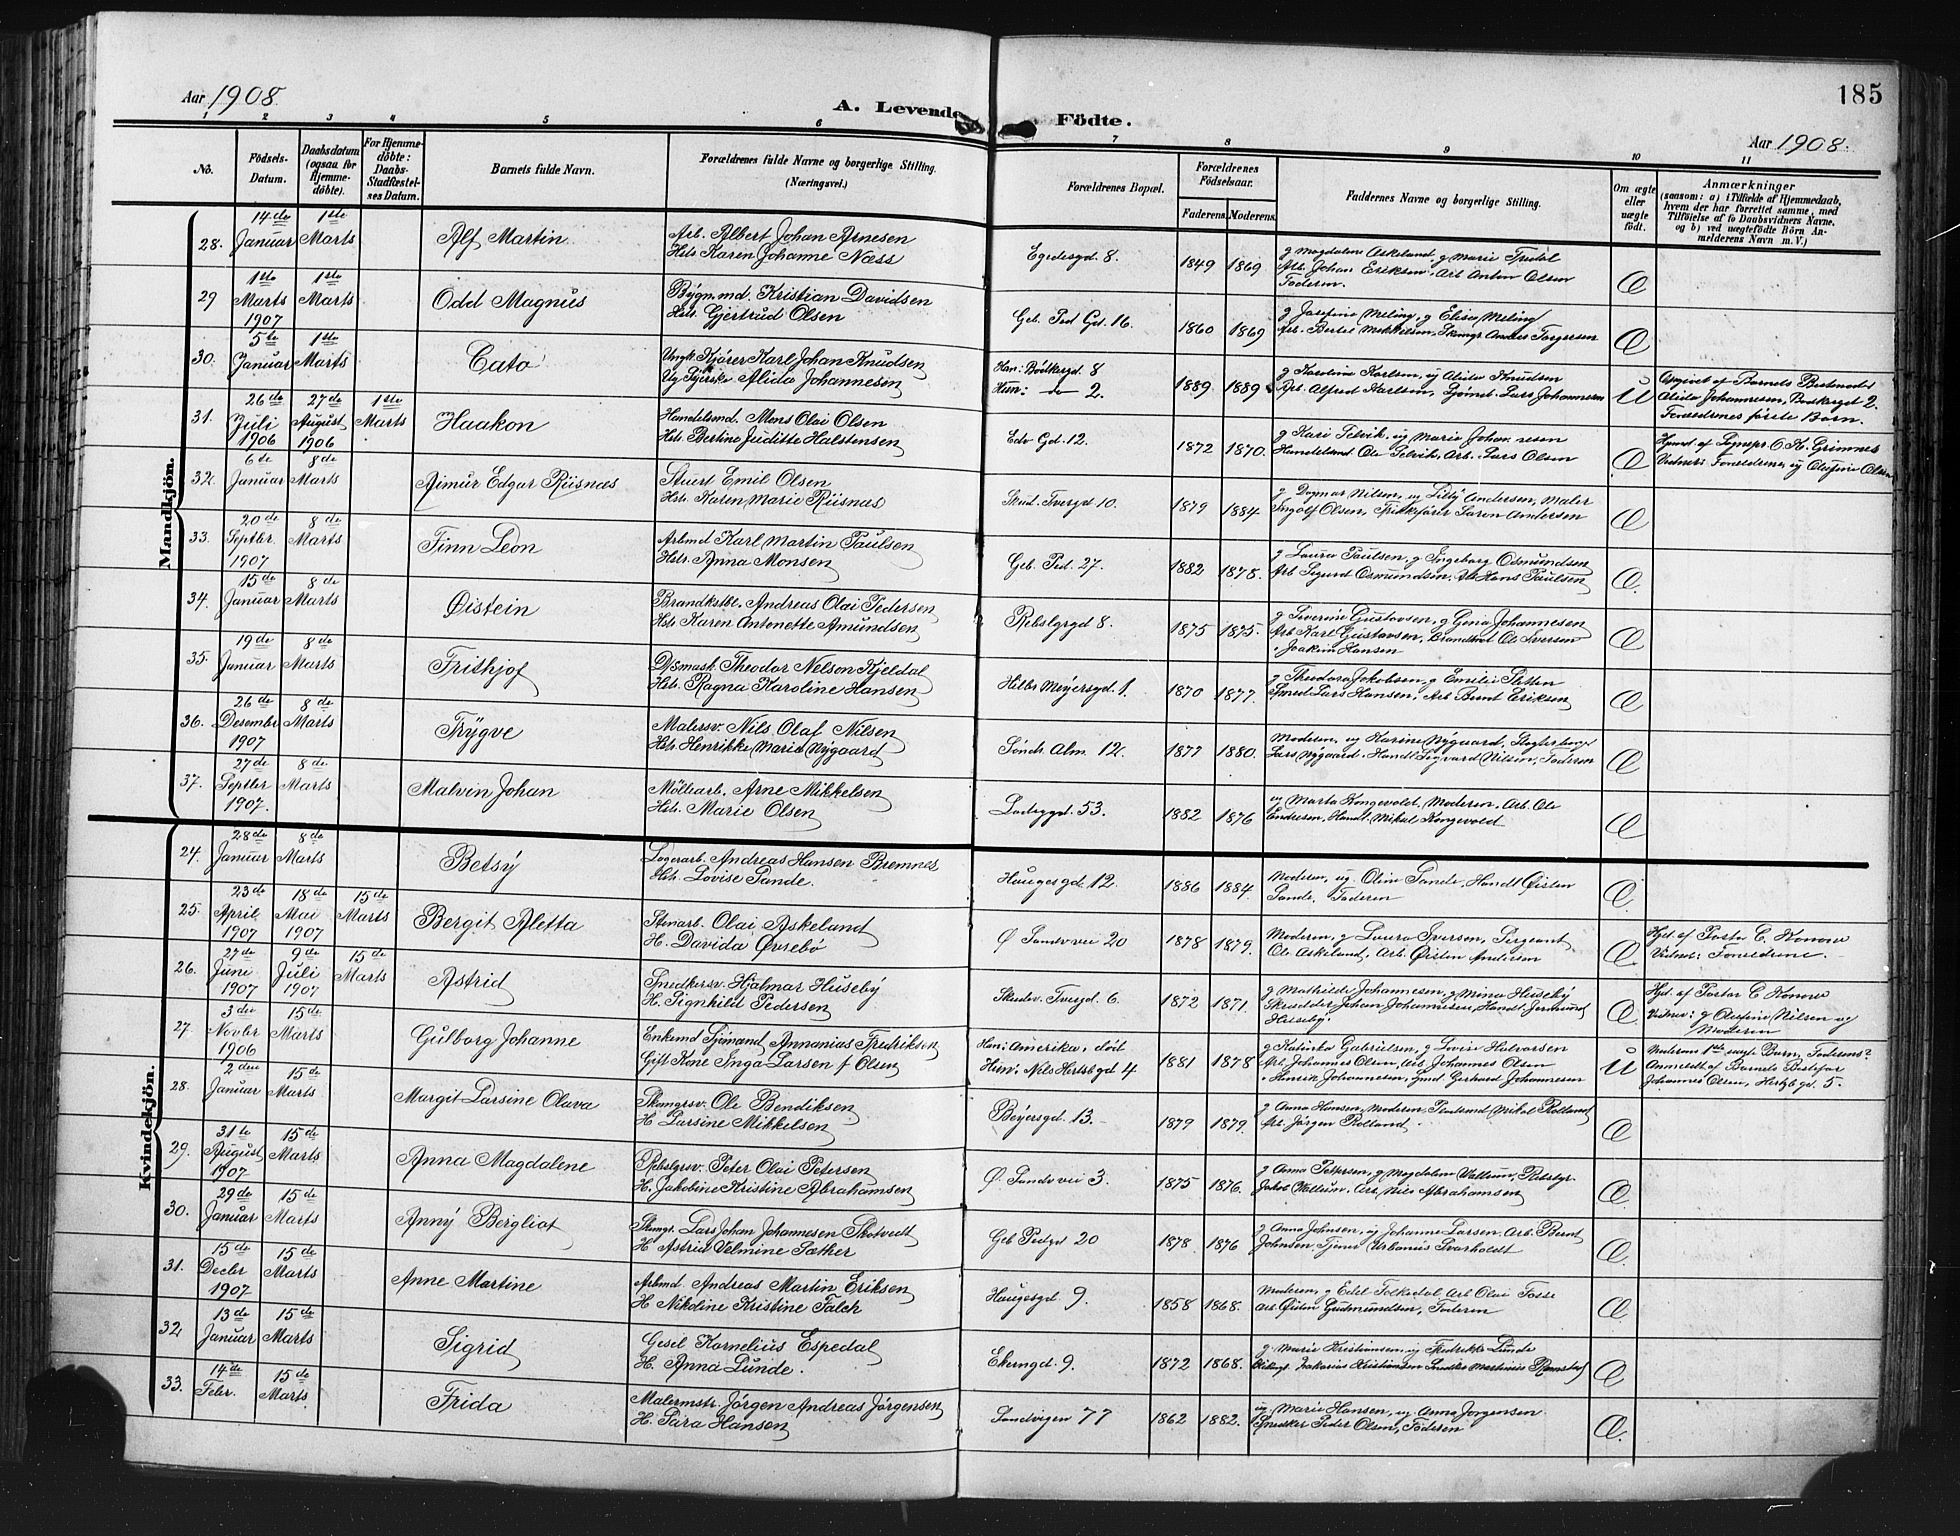 185
Aar 1908.
A. Levende Födte.
Aar 1908.
1 2 3 4 5 6 7 8 9 10 11
No.
Födsels-Datum.
Daabsdatum (ogsaa for Hjemmedöbte).
For Hjemmedöbte: Daabs-Stadfæstelses Datum.
Barnets fulde Navn.
Forældrenes fulde Navne og borgerlige Stilling. (Næringsvei.)
Forældrenes Bopæl.
Forældrenes Födselsaar.
Faderens. Moderens.
Faddernes Navne og borgerlige Stilling.
Om ægte eller uægte födt.
Anmærkninger
(saasom: a) i Tilfælde af Hjemmedaab, hvem der har forrettet samme, med Tilföielse af to Daabsvidners Navne, og b) ved uægtefödte Börn Anmelderens Navn m. V.)
Mandkjön.
28. 14de Januar 1ste Marts Alf Martin
Arb. Albert Johan Arnesen
Hstr. Karen Johanne Næss
Egedesgd. 8. 1849 1869
g Magdalene Askeland, g Marie Tredal
Arb. Johan Eriksen, Arb Anton Olsen
Faderen. Æ
29 1ste Marts 1907 1ste Marts Odd Magnus
Bygn.md. Kristian Davidsen
Hstr. Gjertrud Olsen
Geb. Ped Gd. 16. 1860 1869
g Josefine Meling, g Elisa Meling
Arb. Bertel Mikkelsen, Skomgr Anders Torgersen Æ
30. 5te Januar 1ste Marts Cato
Ungk. Kjører Karl Johan Knudsen
Ug Alida Johannesen
Han: Bødkergd. 8
Hun: — 2. 1889 1889
g Karoline Karlsen, ug Alida Knudsen
Arb. Alfred Karlsen, Sjømd. Lars Johannesen U
Opgivet af Barnets Bestmoder
Alida Johannesen, Bødkergd 2.
Forældrenes første Barn.
31. 26de Juli 1906 27de August 1906 1ste Marts Haakon
Handelsmd. Mons Olai Olsen
Hstr. Bertine Juditte Halstensen
Edv Gd. 12. 1872 1870.
g Kari Selvik, ug Marie Johannesen
Handelsmd Ole Selvik, Arb. Lars Olsen Æ
Hjemd. af Sognepr. O. H. Grimnes
Vidner: Forældrene, ug Olefine Olsen
32. 6de Januar 8de Marts Reimur Edgar Riisnæs
Stuert Emil Olsen
Hstr. Karen Marie Riisnæs
Skud. Tvergd 10. 1879 1884
g Dagmar Nilsen, ug Lilly Andersen, Maler
Ingolf Olsen, Søren Andersen Æ
33. 20de Septbr. 1907 8de Marts Finn Leon
Arbmd Karl Martin Paulsen
Hstr. Anna Monsen
Geb. Ped. 27. 1882 1878.
g Laura Paulsen, g Ingeborg Osmundsen
Arb Sigurd Osmundsen, Arb Hans Paulsen Æ
34. 15de Januar 8de Marts Øistein
Brandkstbl. Andreas Olai Pedersen
Hstr Karen Antonette Amundsen
Rebslgrgd 8. 1875 1875.
g Severine Gustavsen, g Gina Johannesen
Arb Karl Gustavsen, Ole Iversen
Joakim Hansen Æ
35. 19de Januar 8de Marts Frithjof
Theodor Nelson Kjeldal
Hstr. Ragna Karoline Hansen
Hilbr Meyersgd. 1. 1870 1877.
g Theodora Jakobsen, g Emilie Sletten
Smed Lars Hansen, Arb Bernt Eriksen Æ
36. 26de Desembr 1907 8de Marts Trygve
Malersv. Nils Olaf Nilsen
Hstr. Henrikke Marie Nygaard
Søndr. Alm. 12. 1877 1880.
Moderen, ug Harine Nygaard,
Lars Nygaard, Handl Sigvard Nilsen, Faderen Æ
37. 27de Septbr 1907. 8de Marts Malvin Johan
Møllearb. Arne Mikkelsen
Hstr. Marie Olsen
Ladegdgd. 53. 1882 1876
ug Marta Kongevold, Moderen, Arb. Ole
Endresen, Handl. Mikal Kongevold Æ
Kvindekjön.
24. 28de Januar 8de Marts Betsy
Lagerarb. Andreas Hansen Bremnes
Hstr. Lovise Sande.
Haugesgd. 12 1886 1884.
Moderen, ug. Oline Sande, Handl Øisten
Sande, Faderen Æ
25. 23de April 1907 18de Mai 1907 15de Marts Bergit Aletta
Stenarb. Olai Askeland
H. Davida Øvrebø
Ø Sandvvei 20 1878 1879.
Moderen, g Laura Iversen, Sergeant
Ole Askeland, Arb. Øisten Andersen Æ
Hjd. af Pastor C. Konow
Vidner: Forældrene.
26. 27de Juni 1907 9de Juli 1907 15de Marts Astrid
Snedkersv. Hjalmar Huseby
H. Signhild Pedersen
Skudv. Tvergd. 6. 1872 1871.
g Mathilde Johannesen, g Mina Huseby
Skrædder Johan Johannesen, Handl. Ferdinand
Huseby. Æ
Hjd. af Pastor C Konow
Vidner: g Olefine Nilsen og
Moderen
27. 3die Novbr 1906 15de Marts Gulborg Johanne
Enkemd Sjømand Annanias Fredriksen
Gift Kone Inga Larsen f Olsen
Han: Amerika, død
Hun: Nils Hertzbgd 4 1881 1878
g Katinka Gabrielsen, g Lovise Halvorsen
Arb. Johannes Olsen, Arb Johannes Olsen
Henrik Johannesen, Smd. Gerhard Johannesen U
Moderens 1ste uægte Barn, Faderens?
Anmeldt af Barnets Bestefar
Johannes Olsen, Hertzb gd. 5.
28. 2den Januar 15de Marts Margit Larsine Olava
Skomgrsv. Ole Bendiksen
H Larsine Mikkelsen
Beyersgd. 13. 1879 1879.
g Anna Hansen, Moderen, Mikal Rolland
Arb. Jörgen Rolland. Æ
29. 31te August 1907 15de Marts Anna Magdalene
Rebslgrsv. Peter Olai Petersen
H. Jakobine Kristine Abrahamsen
Ø. Sandvvei 3. 1875 1876.
g Anna Pettersen, g Magdalene Vallum, Rebslgr.
Jakob Vallum, Arb. Nils Abrahamsen Æ
30. 29de Januar 15de Marts Anny Bergliot
Skomgr. Lars Johan Johannesen Skotvedt
H Astrid Velmine Sætker
Geb Pedgd 20 1878 1876
g Anna Johnsen, ug Johanne Larsen, Arb. Bernt
Johnsen, Tjener Urbanius Svarholdt Æ
31. 15de Decbr 1907 15de Marts Anne Martine
Arbmd. Andreas Martin Eriksen
H Nikoline Kristine Falck
Haugesgd. 9. 1858 1868.
Moderen, g Edel Folkedal Arb Olai Fosse
Arb. Øisten Gudmundsen, Faderen Æ
32. 13de Januar 15de Marts Sigrid
Gesel Kornelius Espedal
H. Anna Lunde.
Ekrengd. 9. 1872 1868.
g. Marie Kristiansen, ug Fredrikke Lunde
Zakarias Kristiansen Snedker Martinius Ramstad Æ
33. 14de Febr. 15de Marts Frida
Malermstr. Jörgen Andreas Jörgensen
H. Sara Hansen
Sandvigen 77 1862 1882.
ug. Marie Hansen, ug Anna Jorgensen
Snedker Peder Olsen, Faderen Æ.